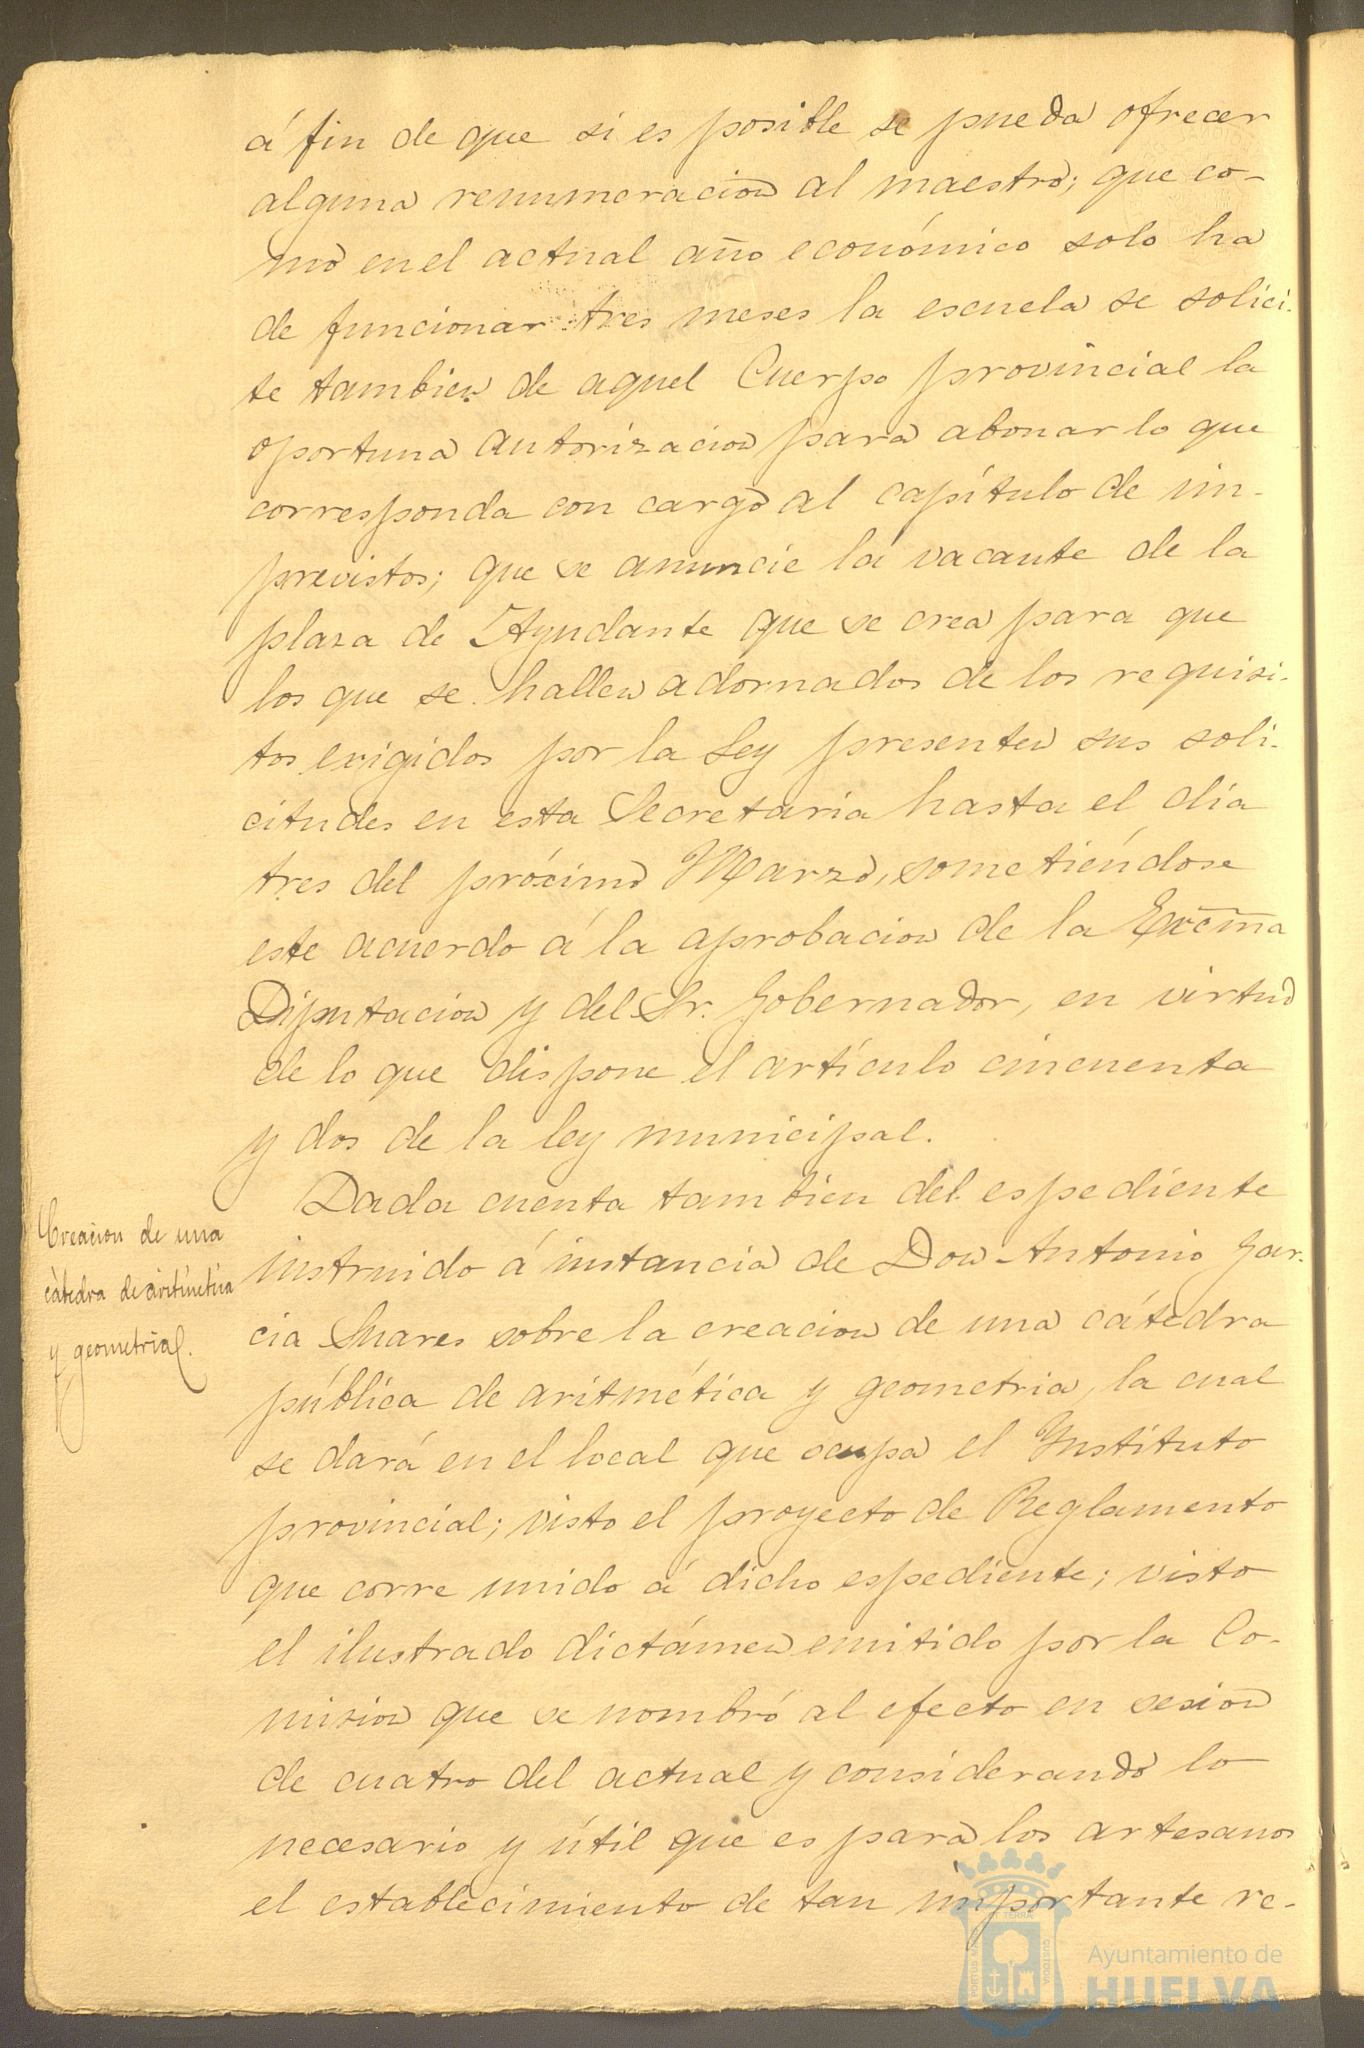 á fin de que si es posible se pueda ofrecer
alguna renumeracion al maestro; que co-
mo en el actual año económico solo ha
de funcionar tres meses la escuela se solici-
te tambien de aquel Cuerpo provincial la
oportuna autorizacion para abonar lo que
corresponda con cargo al capítulo de im-
previstos; que se anuncie la vacante de la
plaza de Ayudante que se crea para que
los que se hallen adornados de los requisi-
tos exigidos por la Ley presenten sus soli-
citudes en esta Secretaria hasta el dia
tres del próximo Marzo, sometiéndose
este acuerdo á la aprobacion de la Excma
Diputacion y del Sr. Gobernador, en virtud
de lo que dispone el artículo cincuenta
y dos de la ley municipal.
Creacion de una
cátedra de aritmética
y geometria.
Dada cuenta tambien del espediente
instruido á instancia de Don Antonio Gar-
cia Suares sobre la creacion de una cátedra
pública de aritmética y geometria, la cual
se dará en el local que ocupa el Instituto
provincial; visto el proyecto de Reglamento
que corre unido á dicho espediente; visto
el ilustrado dictámen emitido por la Co-
mision que se nombró al efecto en sesion
de cuatro del actual y considerando lo
necesario y útil que es para los artesanos
el establecimiento de tan importante re-
Ayuntamiento de
HUELVA